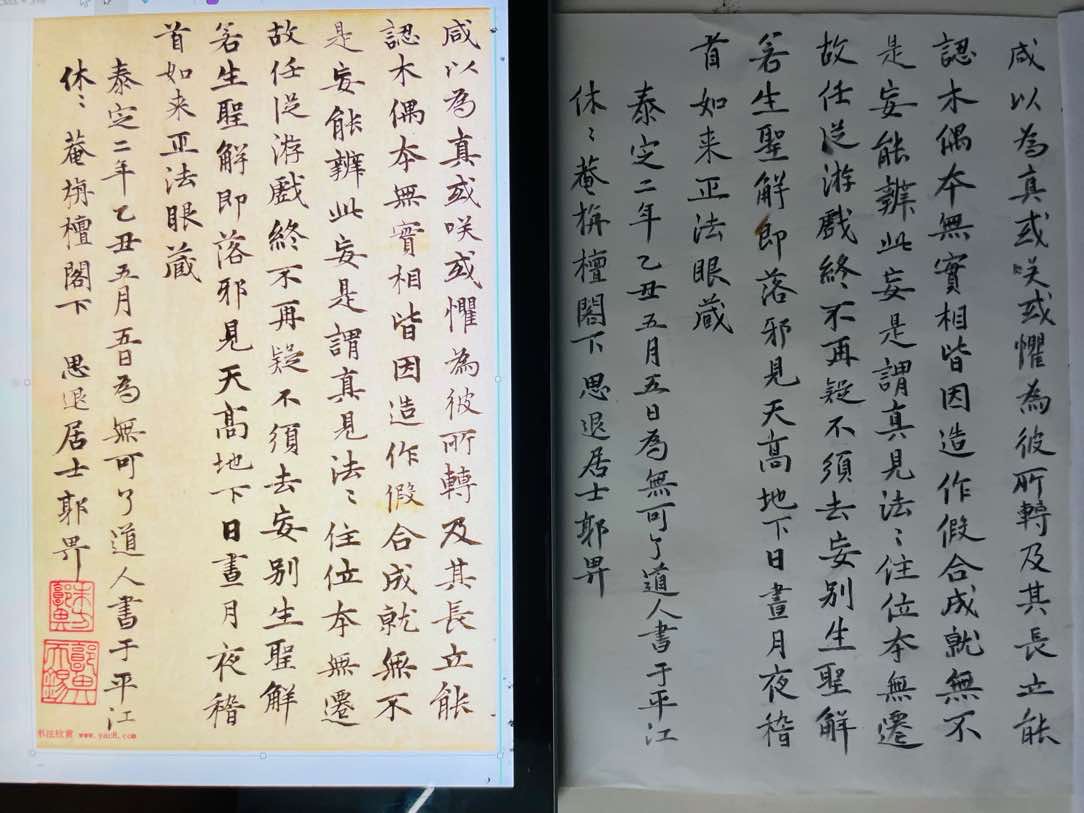 咸以為真或咲或懼為彼所轉及其長立能
認木偶本無實相皆因造作假合成就無不
是妄能辨此妄是謂真見法〻住位本無遷
故任從游戲終不再疑不須去妄別生聖解
若生聖解即落邪見天高地下日晝月夜稽
首如来正法眼蔵
泰定二年乙丑五月五日為無可了道人書于平江
休〻菴栴檀閣下 思退居士郭畀
郭畀
郭畀
天錫
书法欣赏 www.yac8.com
咸以為真或咲或懼為彼所轉及其長立能
認木偶本無實相皆因造作假合成就無不
是妄能辨此妄是謂真見法〻住位本無遷
故任從游戲終不再疑不須去妄別生聖解
若生聖解即落邪見天高地下日晝月夜稽
首如来正法眼蔵
泰定二年乙丑五月五日為無可了道人書于平江
休〻菴栴檀閣下思退居士郭畀